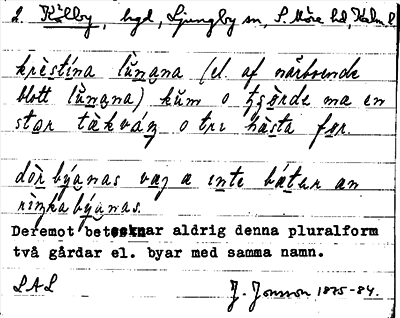 2. Kölby, bgd, Ljungby sn, S. Möre hd, Kalm l
krèstína lùnana (el. af närboende
blott lùnana) kům o tjörde ma en
star tækváṇ o tri hæsta før.
dör býanas vaz a ènte bætar an
rinka býanas.
Deremot betecknar aldrig denna pluralform
två gårdar el. byar med samma namn.
LAL J. Jonsson 1875-84.